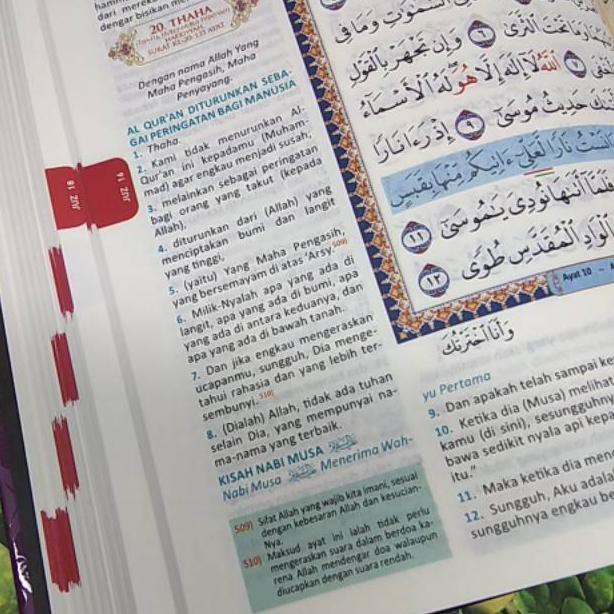 dari mereka
dengar bisikan mereka
20. THAHA
SURAT KE-20: 135 AYAT
Dengan nama Allah Yang
Maha Pengasih, Maha
Penyayang.
AL QUR'AN DITURUNKAN SEBA-
GAI PERINGATAN BAGI MANUSIA
1. Thaha.
2. Kami tidak menurunkan Al-
Qur'an ini kepadamu (Muham-
mad) agar engkau menjadi susah;
3. melainkan sebagai peringatan
bagi orang yang takut (kepada
Allah),
4. diturunkan dari (Allah) yang
menciptakan bumi dan langit
yang tinggi,
5. (yaitu) Yang Maha Pengasih,
yang bersemayam di atas 'Arsy.509)
6. Milik-Nyalah apa yang ada di
langit, apa yang ada di bumi, apa
yang ada di antara keduanya, dan
apa yang ada di bawah tanah.
7. Dan jika engkau mengeraskan
ucapanmu, sungguh, Dia menge-
tahui rahasia dan yang lebih ter-
sembunyi.510)
8. (Dialah) Allah, tidak ada tuhan
selain Dia, yang mempunyai na-
ma-nama yang terbaik.
KISAH NABI MUSA
Nabi Musa Menerima Wah-
509) Sifat Allah yang wajib kita imani, sesuai
dengan kebesaran Allah dan kesucian-
Nya.
510) Maksud ayat ini ialah tidak perlu
mengeraskan suara dalam berdoa ka-
rena Allah mendengar doa walaupun
diucapkan dengan suara rendah.
JUZ 18
JUZ 16
السموت وما في
تحت الثرى ٦ وإن تجهر بالقول
٧ الله لا إله إلا هو له الأسماء
حديث موسى ٩ إذ رءا نارا
نارا لعلي ءاتيكم منها بقبس
أتىها نودي يموسى ١١
بالواد المقدس طوى ١٢
Ayat 10
وأنا اخترتك
yu Pertama
9. Dan apakah telah sampai
10. Ketika dia (Musa)
kamu (di sini),
bawa sedikit nyala api
itu."
11. Maka ketika dia
12. Sungguh, Aku
sungguhnya engkau